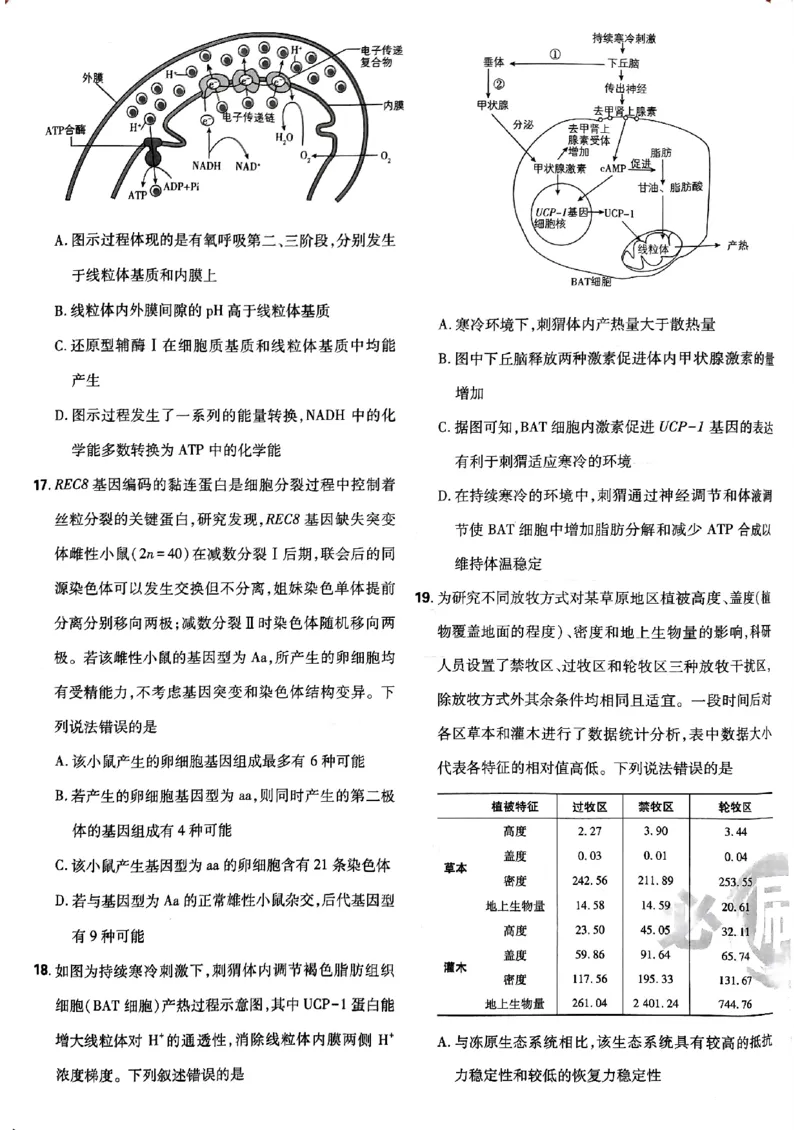 外膜
H⁺
H⁺
电子传递
复合物
内膜
电子传递链
ATP合酶
H⁺
e⁻
H₂O
O₂
O₂
NADH
NAD⁺
ATP
ADP+Pi
A. 图示过程体现的是有氧呼吸第二、三阶段,分别发生
于线粒体基质和内膜上
B. 线粒体内外膜间隙的 pH 高于线粒体基质
C. 还原型辅酶Ⅰ在细胞质基质和线粒体基质中均能
产生
D. 图示过程发生了一系列的能量转换,NADH 中的化
学能多数转换为 ATP 中的化学能
17. REC8 基因编码的黏连蛋白是细胞分裂过程中控制着
丝粒分裂的关键蛋白,研究发现,REC8 基因缺失突变
体雌性小鼠(2n=40)在减数分裂Ⅰ后期,联会后的同
源染色体可以发生交换但不分离,姐妹染色单体提前
分离分别移向两极;减数分裂Ⅱ时染色体随机移向两
极。若该雌性小鼠的基因型为 Aa,所产生的卵细胞均
有受精能力,不考虑基因突变和染色体结构变异。下
列说法错误的是
A. 该小鼠产生的卵细胞基因组成最多有 6 种可能
B. 若产生的卵细胞基因型为 aa,则同时产生的第二极
体的基因组成有 4 种可能
C. 该小鼠产生基因型为 aa 的卵细胞含有 21 条染色体
D. 若与基因型为 Aa 的正常雄性小鼠杂交,后代基因型
有 9 种可能
18. 如图为持续寒冷刺激下,刺猬体内调节褐色脂肪组织
细胞(BAT 细胞)产热过程示意图,其中 UCP-1 蛋白能
增大线粒体对 H⁺的通透性,消除线粒体内膜两侧 H⁺
浓度梯度。下列叙述错误的是
持续寒冷刺激
垂体
①
下丘脑
②
传出神经
甲状腺
去甲肾上腺素
分泌
去甲肾上
腺素受体
增加
脂肪
甲状腺激素
cAMP
促进
甘油、脂肪酸
UCP-1基因
UCP-1
细胞核
线粒体
产热
BAT细胞
A. 寒冷环境下,刺猬体内产热量大于散热量
B. 图中下丘脑释放两种激素促进体内甲状腺激素的量
增加
C. 据图可知,BAT 细胞内激素促进 UCP-1 基因的表达
有利于刺猬适应寒冷的环境
D. 在持续寒冷的环境中,刺猬通过神经调节和体液调
节使 BAT 细胞中增加脂肪分解和减少 ATP 合成以
维持体温稳定
19. 为研究不同放牧方式对某草原地区植被高度、盖度(植
物覆盖地面的程度)、密度和地上生物量的影响,科研
人员设置了禁牧区、过牧区和轮牧区三种放牧干扰区,
除放牧方式外其余条件均相同且适宜。一段时间后对
各区草本和灌木进行了数据统计分析,表中数据大小
代表各特征的相对值高低。下列说法错误的是
植被特征 过牧区 禁牧区 轮牧区
草本
高度 2.27 3.90 3.44
盖度 0.03 0.01 0.04
密度 242.56 211.89 253.55
地上生物量 14.58 14.59 20.61
灌木
高度 23.50 45.05 32.11
盖度 59.86 91.64 65.74
密度 117.56 195.33 131.67
地上生物量 261.04 2 401.24 744.76
A. 与冻原生态系统相比,该生态系统具有较高的抵抗
力稳定性和较低的恢复力稳定性